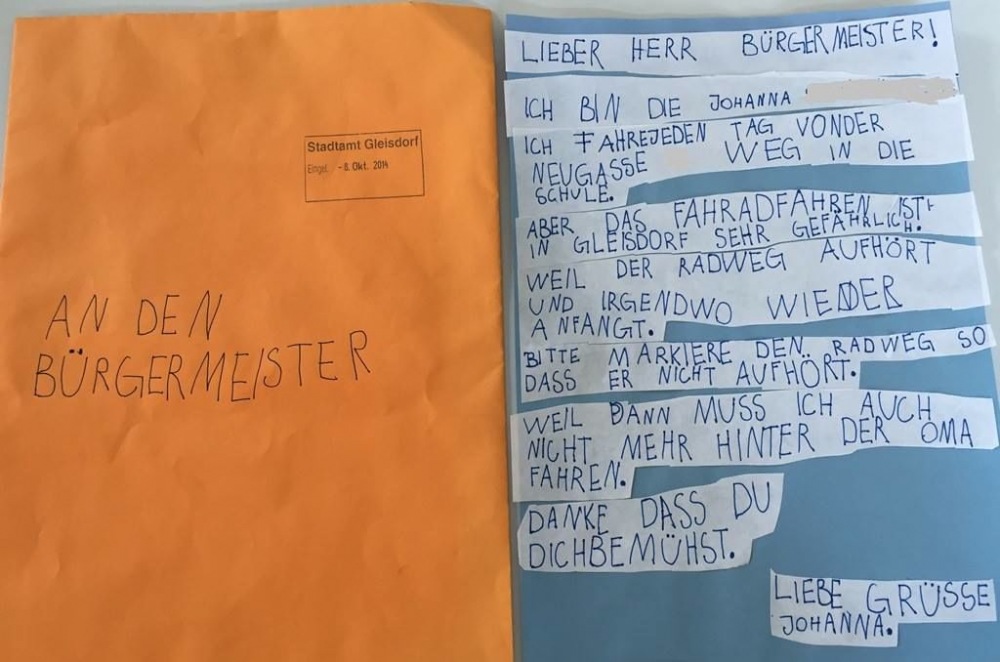 Stadtamt Gleisdorf
Eingel. -8. Okt. 2014
AN DEN
BÜRGERMEISTER
LIEBER HERR BÜRGERMEISTER!
ICH BIN DIE JOHANNA
ICH FAHREJEDEN TAG VONDER
NEUGASSE WEG IN DIE
SCHULE.
ABER DAS FAHRADFAHREN IST
IN GLEISDORF SEHR GEFÄHRLICH.
WEIL DER RADWEG AUFHÖRT
UND IRGENDWO WIEDER
ANFANGT.
BITTE MARKIERE DEN RADWEG SO
DASS ER NICHT AUFHÖRT.
WEIL DANN MUSS ICH AUCH
NICHT MEHR HINTER DER OMA
FAHREN.
DANKE DASS DU
DICHBEMÜHST.
LIEBE GRÜSSE
JOHANNA.